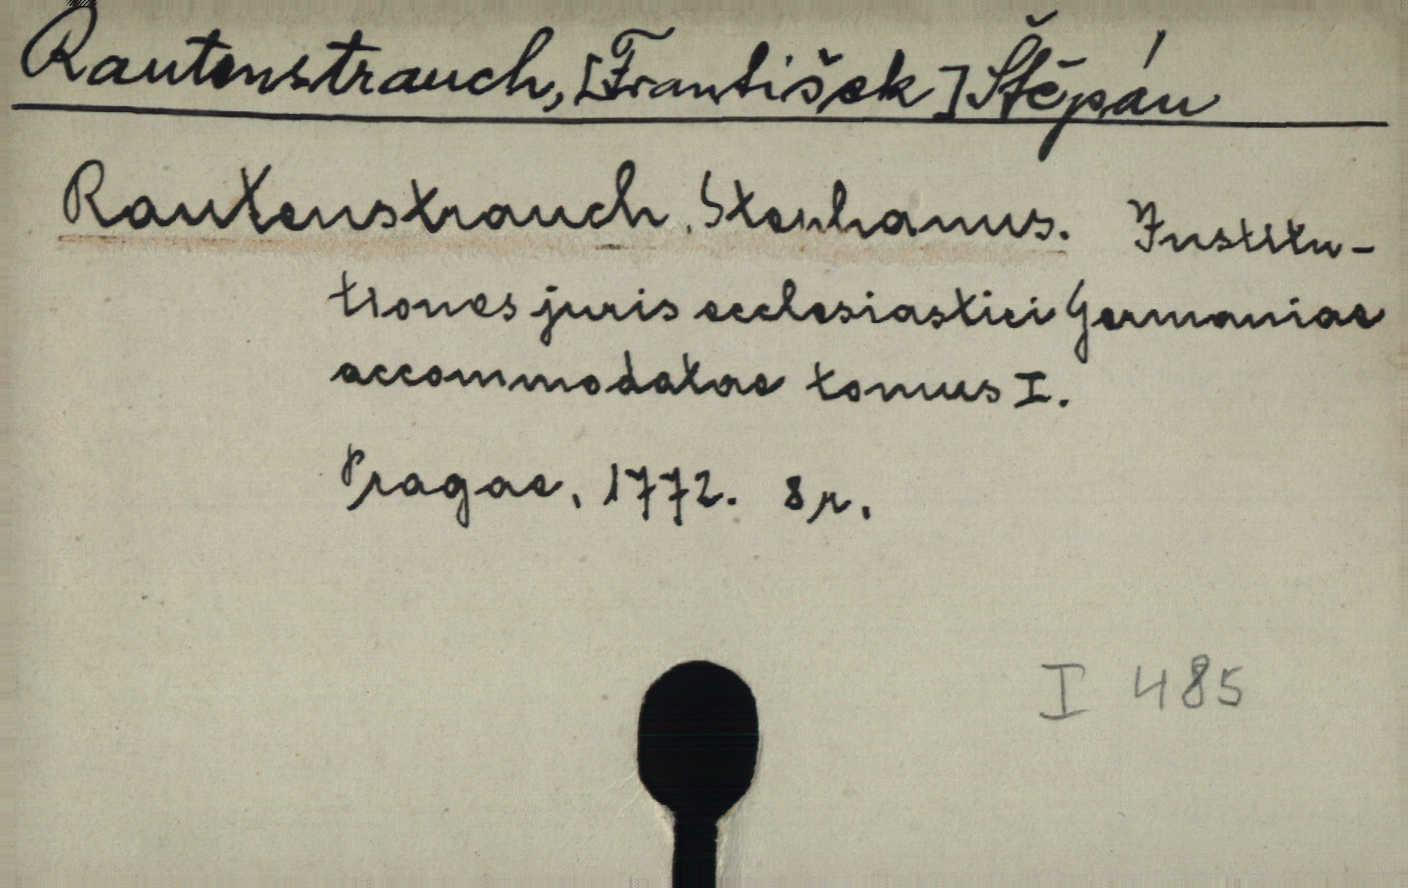 Rautenstrauch, [František] Štěpán
Rautenstrauch, Stephanus. Institu-
tiones juris ecclesiastici Germaniae
accommodatae tomus I.
Pragae, 1772. 8r.
I 485